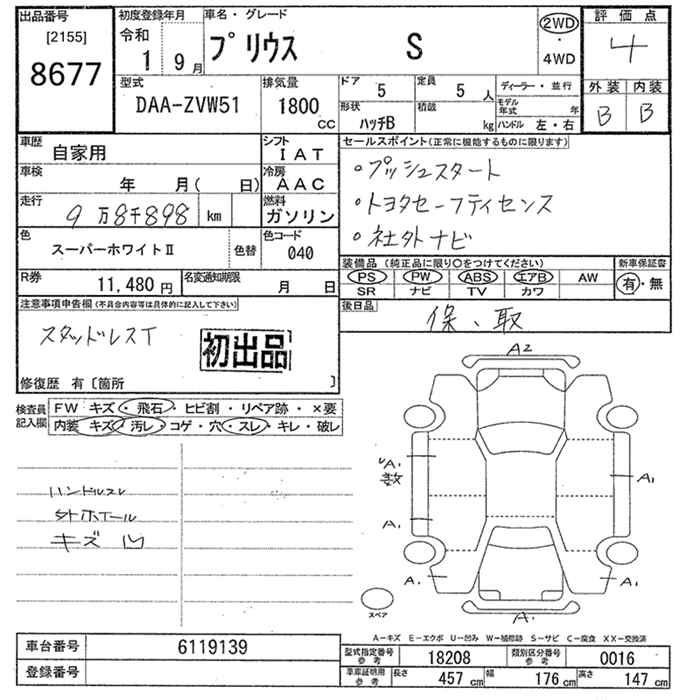 出品番号
[2155]
8677
初度登録年月
令和
1 9月
車名・グレード
プリウス S
2WD
・
4WD
評価点
4
外装 内装
B B
型式
DAA-ZVW51
排気量
1800
CC
ドア
5
定員
5 人
形状
ハッチB
積載
kg
ディーラー・並行
モデル年式 年
ハンドル 左・右
車歴
自家用
シフト
IAT
車検
年 月( 日)
冷房
AAC
走行
9万8千898 km
燃料
ガソリン
色
スーパーホワイトⅡ
色替
色コード
040
R券
11,480 円
名変通知期限
月 日
セールスポイント(正常に機能するものに限ります)
・プッシュスタート
・トヨタセーフティセンス
・社外ナビ
装備品 (純正品に限り○をつけてください)
PS PW ABS エアB AW
SR ナビ TV カワ
新車保証書
有・無
後日品
保、取
注意事項申告欄(不具合内容等は具体的に記入して下さい)
スタッドレスT
初出品
修復歴 有〔箇所 〕
検査員
記入欄
FW キズ・飛石・ヒビ割・リペア跡・×要
内装 キズ・汚レ・コゲ・穴・スレ・キレ・破レ
ハンドルスレ
外ホイール
キズ 凹
A2
A1
数
A1
A1
A1
A1
A1
スペア
A−キズ E−エクボ U−凹み W−補修跡 S−サビ C−腐食 XX−交換済
車台番号
6119139
登録番号
型式指定番号
参考
18208
類別区分番号
参考
0016
車庫証明用
参考
長さ
457 cm
幅
176 cm
高さ
147 cm